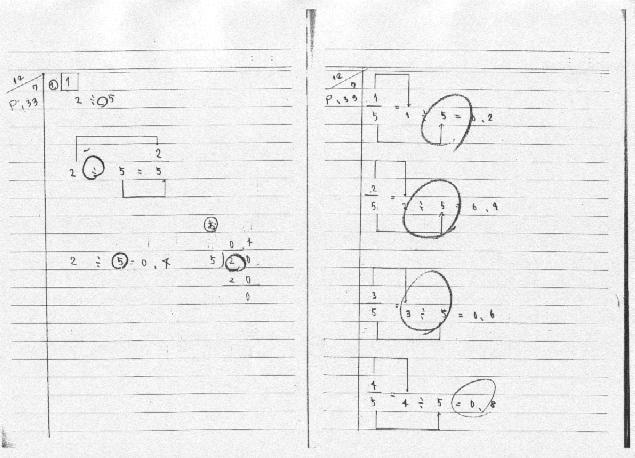 12/7
P.33
① 1
2 ÷ 5
2 ÷ 5 = 2/5
2 ÷ 5 = 0.4
0.4
5)2 0
2 0
0
12/7
P.33
1/5 = 1 ÷ 5 = 0.2
2/5 = 2 ÷ 5 = 0.4
3/5 = 3 ÷ 5 = 0.6
4/5 = 4 ÷ 5 = 0.8